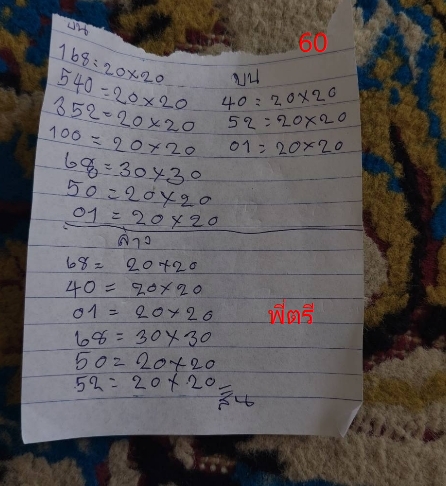 บน
60
168=20×20
540=20×20
352=20×20
100=20×20
68=30×30
50=20×20
01=20×20
บน
40=20×20
52=20×20
01=20×20
ล่าง
68=20×20
40=20×20
01=20×20
68=30×30
50=20×20
52=20×20
พี่ตรี